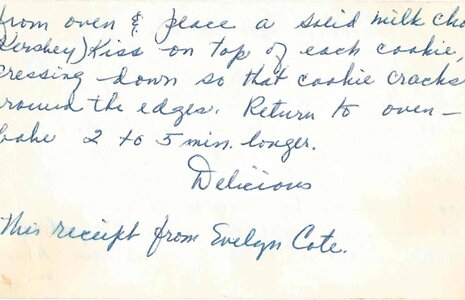 from oven & place a solid milk cho
Hershey) Kiss on top of each cookie,
pressing down so that cookie cracks
around the edges. Return to oven –
bake 2 to 5 min. longer.
Delicious
This receipt from Evelyn Cote.